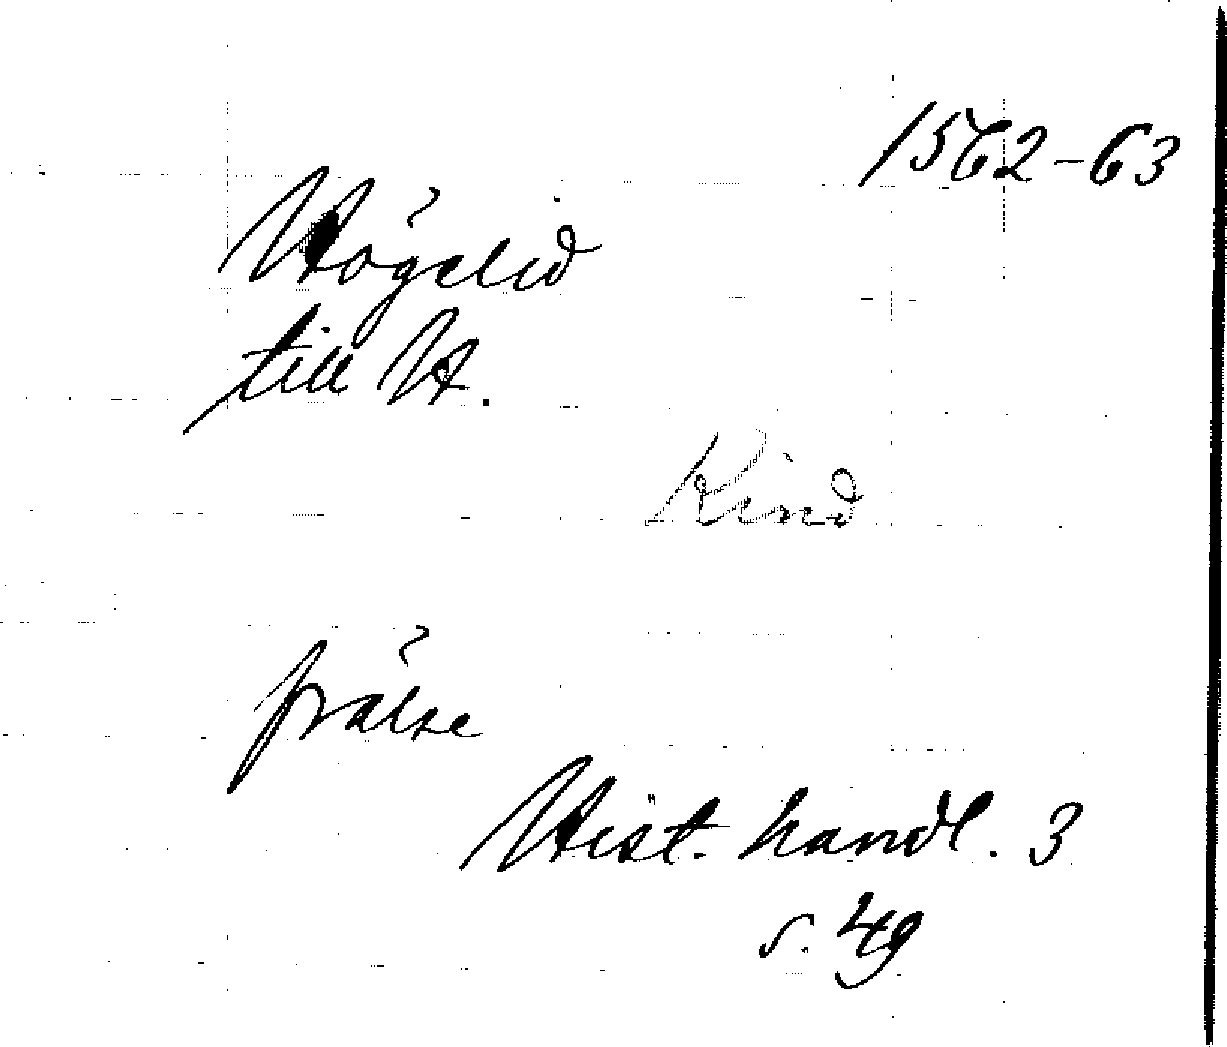 1562-63
Högelid
till H.
Kind
frälse
Hist. handl. 3
s. 49